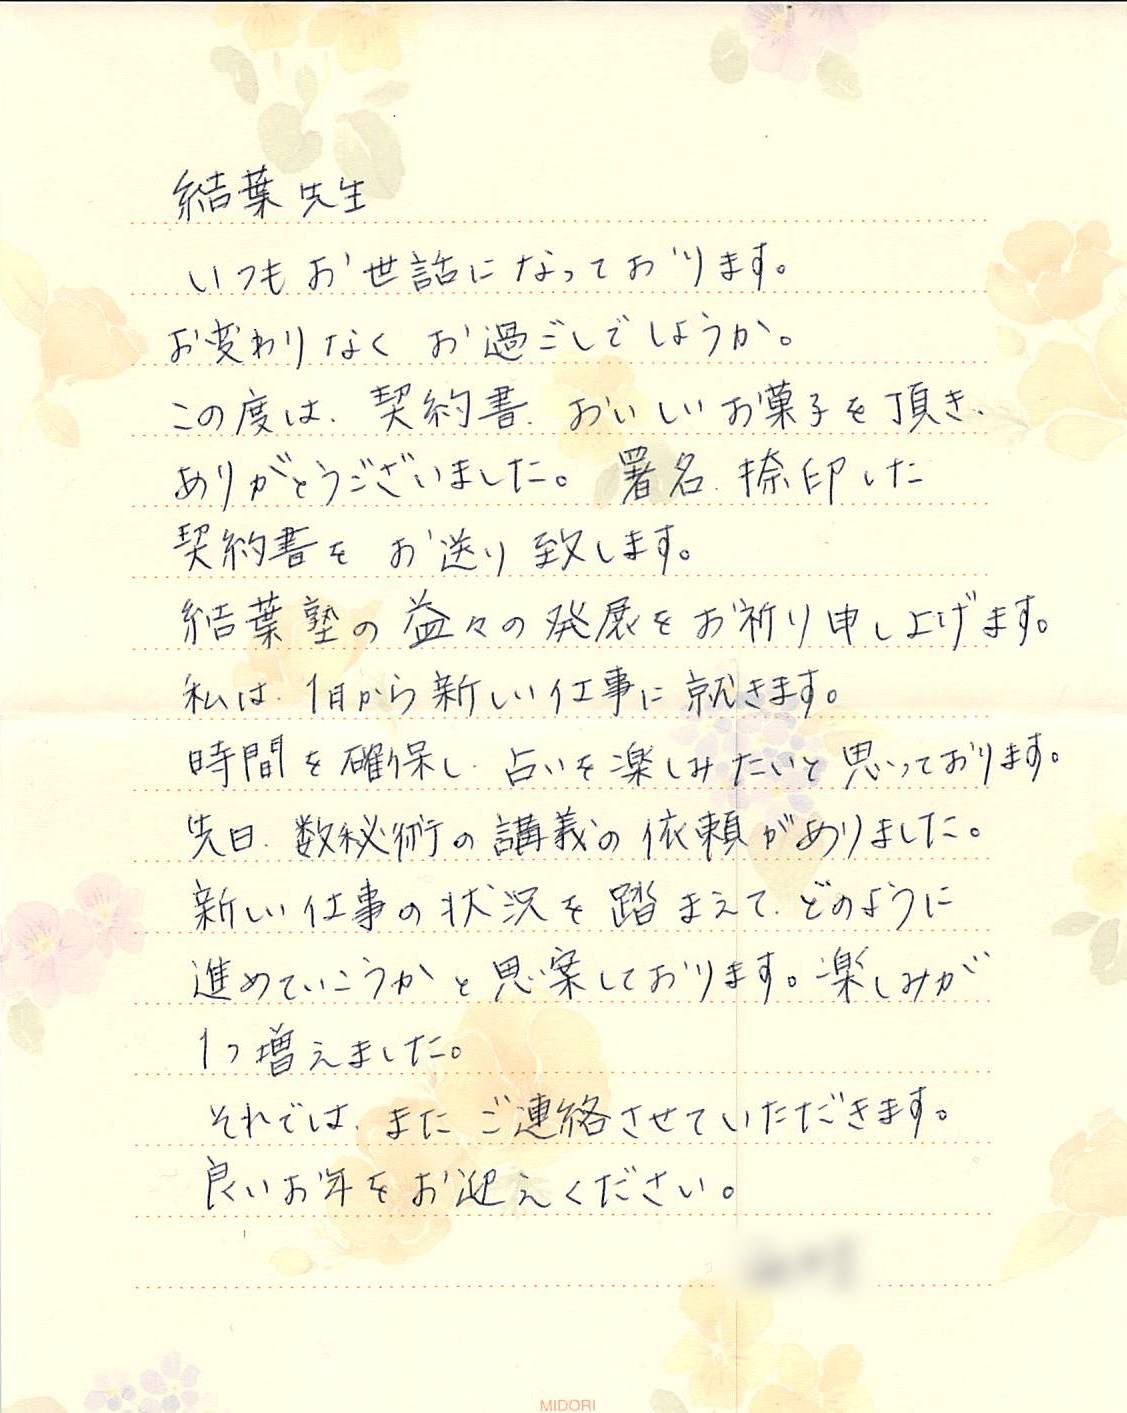 結葉先生
いつもお世話になっております。
お変わりなくお過ごしでしょうか。
この度は、契約書、おいしいお菓子を頂き、
ありがとうございました。署名、捺印した
契約書をお送り致します。
結葉塾の益々の発展をお祈り申し上げます。
私は、1月から新しい仕事に就きます。
時間を確保し、占いを楽しみたいと思っております。
先日、数秘術の講義の依頼がありました。
新しい仕事の状況を踏まえて、どのように
進めていこうかと思案しております。楽しみが
1つ増えました。
それでは、またご連絡させていただきます。
良いお年をお迎えください。
MIDORI